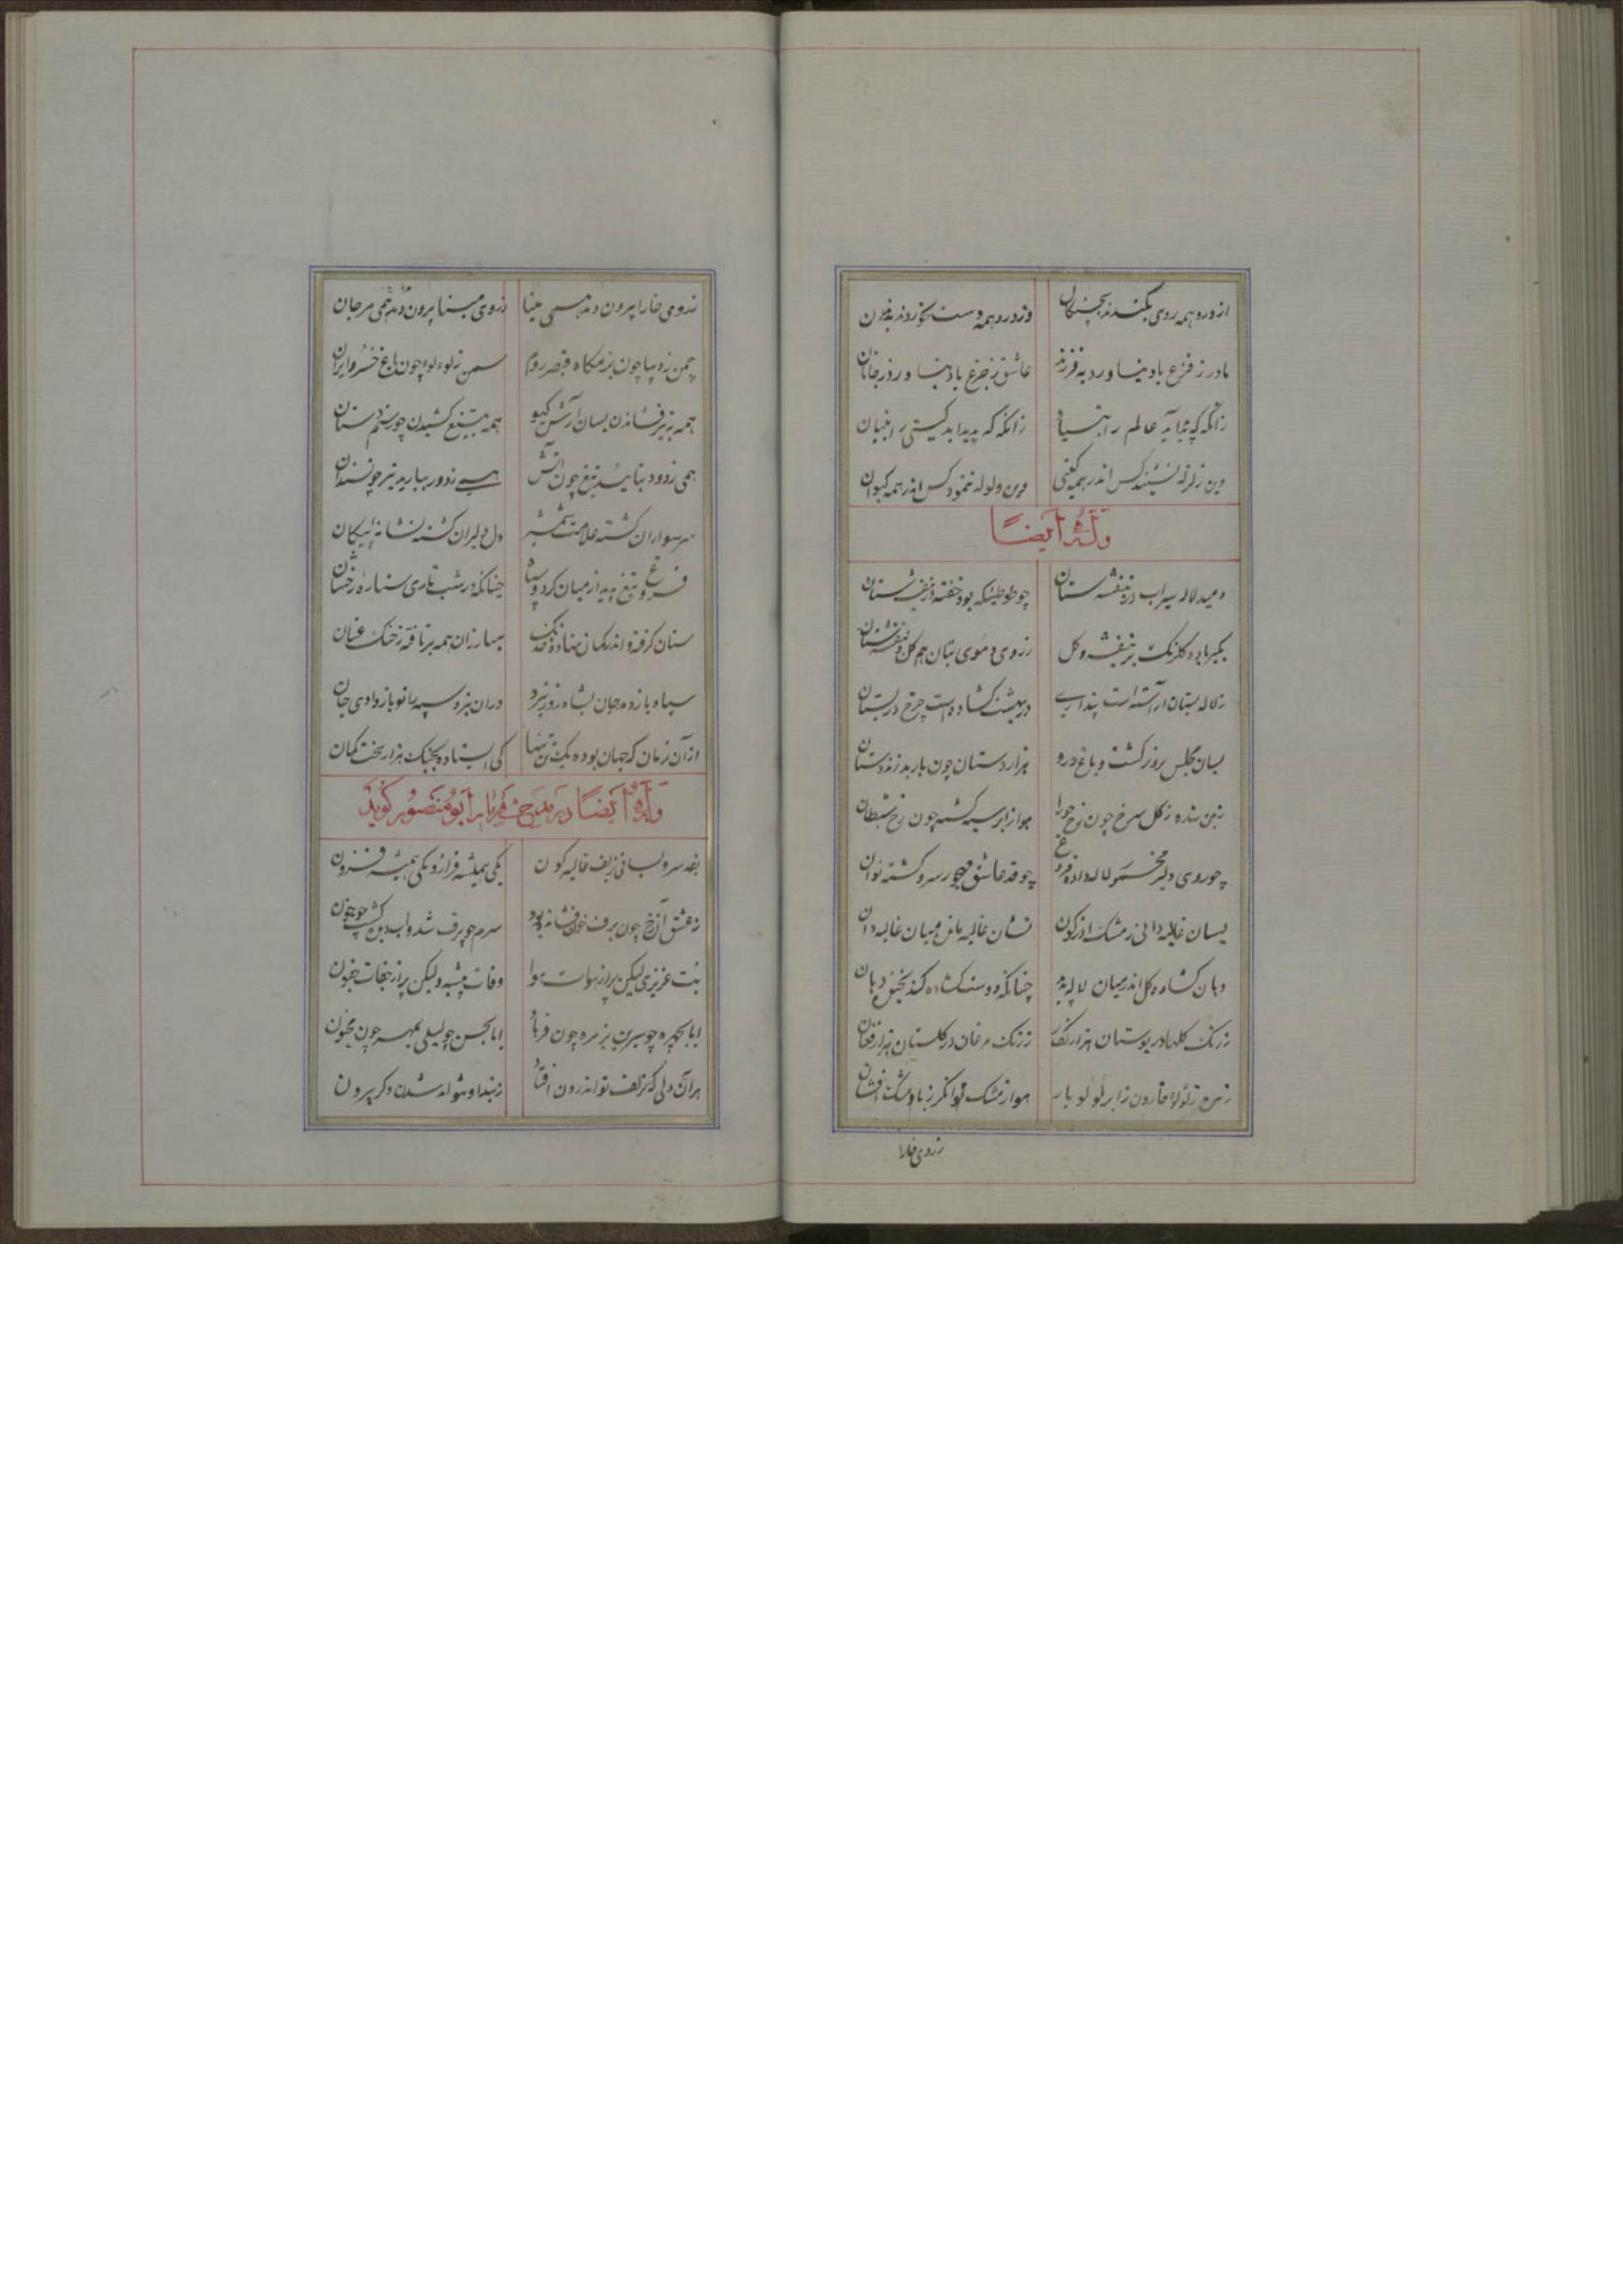 از درد همه روی بکندند بچنگال وز درد همه دست بخوردند بدندان
مادر ز فزع یاد نیاورد به فرزند عاشق ز جزع یاد نیاورد ز جانان
زانگه که پدید آید عالم را بنیاد زانگه که پدید آید گیتی را بنیان
وین زلزله نشنید کس اندر همه گیتی وین ولوله ننمود کس اندر همه کیوان
وله ایضاً
دمید لاله سیراب در بنفشه ستان چو طوطیئی که بود خفته در بنفشه ستان
بگیر باده گلرنگ بر بنفشه و گل ز روی و موی بتان هم گل و بنفشه ستان
ز لاله بستان آراسته است پنداری در بهشت گشاده است چرخ در بستان
بسان مجلس پرویز گشت و باغ درو هزار دستان چون باربد زند دستان
زمین شده ز گل سرخ چون رخ حورا هوا ز ابر سیه گشته چون رخ شیطان
چو روی دلبر مخمور لاله داده فروغ چو قد عاشق مهجور سرو گشته نوان
بسان غالیه دانی ز مشک آذرگون نشان غالیه مانده میان غالیه دان
دهان گشاده گل اندر میان لاله بدید چنانکه دوست گشاده کند بخنده دهان
ز رنگ گلها در بوستان هزار نگار ز رنگ مرغان در گلستان هزار فغان
زمین ز لؤلؤ قارون ز ابر لؤلؤ بار هوا ز مشک توانگر ز باد مشک افشان
ز روی خارا
ز روی خارا بیرون دمد همی مینا ز روی مینا بیرون دمد همی مرجان
چمن ز دیبا چون بزمگاه قیصر روم سمن ز لؤلؤ چون باغ خسرو ایران
همه به تیر فشاندن بسان آرش و گیو همه به تیغ کشیدن چو رستم دستان
همی ز دود بتابید تیغ چون آتش همی ز دور ببارید تیر چون سندان
سر سواران گشته علامت شمشیر دل دلیران گشته نشانه پیکان
فروغ تیغ پدید از میان گرد سپاه چنانکه در شب تاری ستاره رخشان
سنان گرفته و اندر کمان نهاده خدنگ مبارزان همه برتافته ز جنگ عنان
سپاه باز دهد جان بشاه روز نبرد در آن نبرد سپه را تو باز دادی جان
از آن زمان که جهان بوده یک تن تنها کی ایستاده بجنگ هزار سخت کمان
وله ایضاً در مدح شهریار ابومنصور گوید
بقد سرو بسانی بزلف غالیه گون یکی همیشه فراز و یکی همیشه فزون
ز عشق آن رخ چون برف خون فشانده برو سرم چو برف شد و آب دیده گشت چو خون
بت عزیزی لیکن پر از هوات هوا وفات پیشه ولیکن پر از جفات جفون
ایا بچهره چو شیرین بزمره چون فرهاد ایا بحسن چو لیلی بمهر چون مجنون
هر آن دلی که بزلف تو اندرون افتاد ز بند او نتواند شدن دگر بیرون